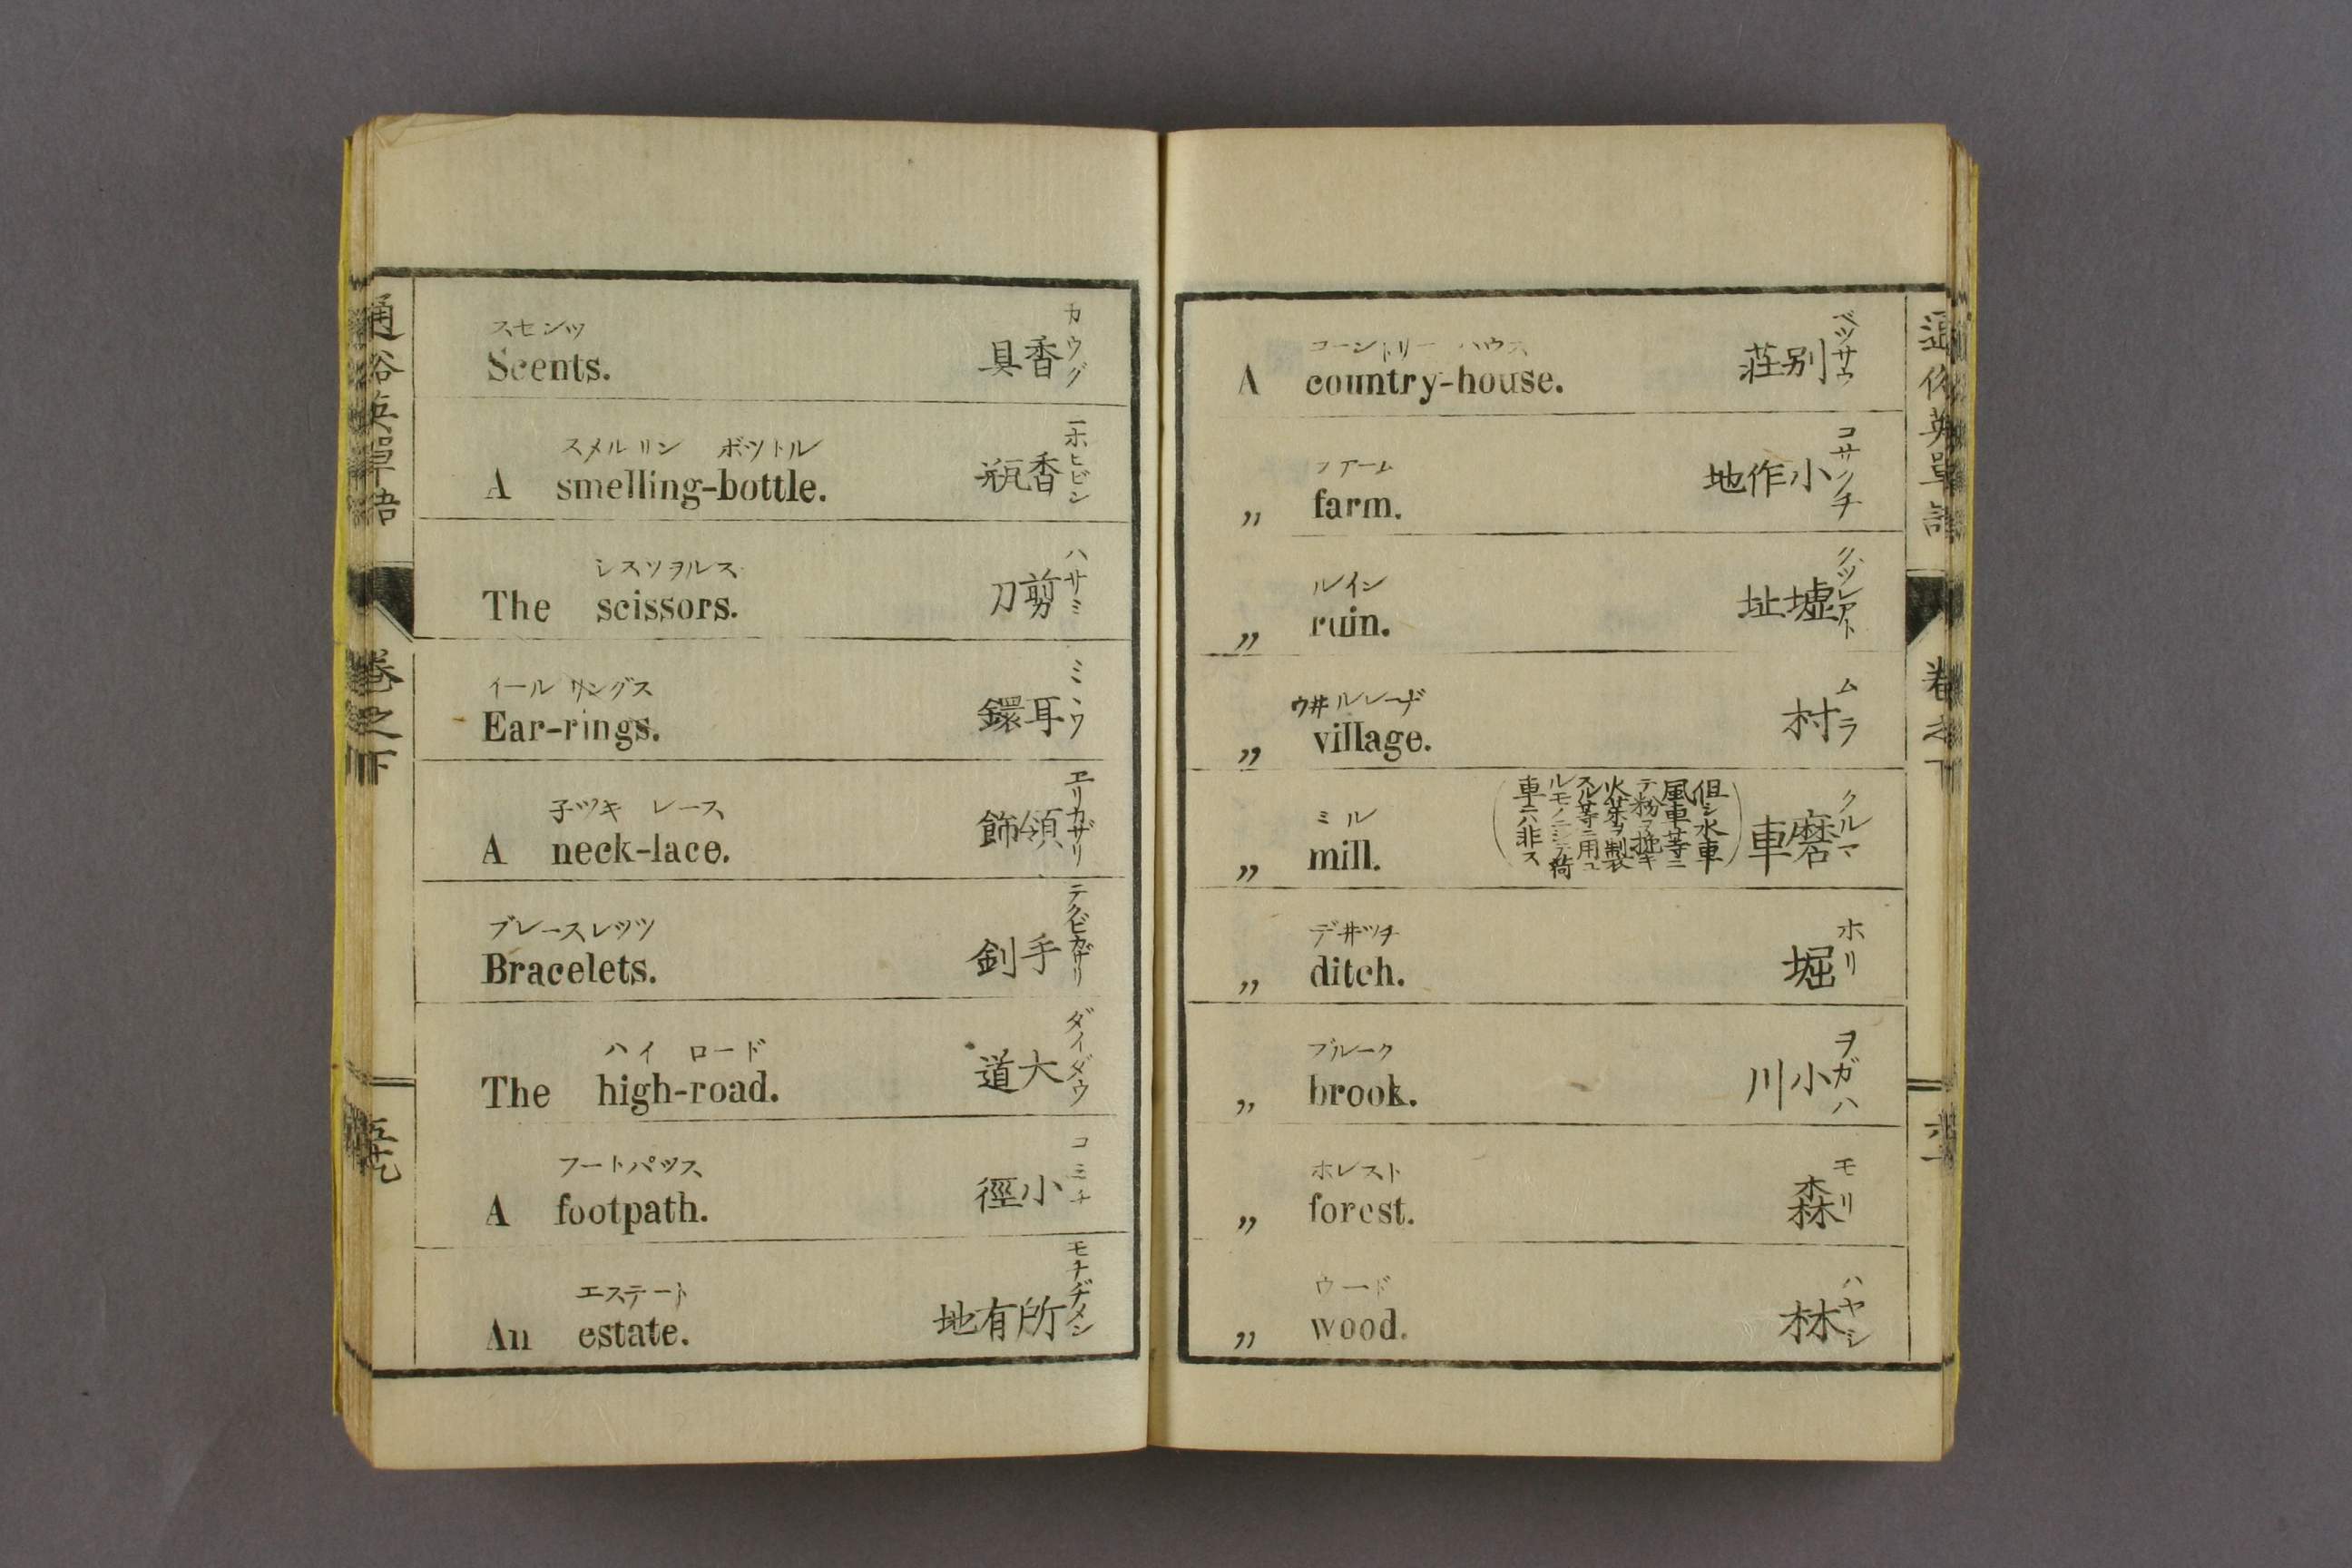 通俗英單語
卷之下
スセンツ
Scents.
具香
カウグ
スメルリン ボツトル
A smelling-bottle.
瓶香
ニホヒビン
シスソヲルス
The scissors.
刀剪
ハサミ
イールリングス
Ear-rings.
鐶耳
ミヽワ
子ツキ レース
A neck-lace.
飾領
ヱリカザリ
ブレースレツツ
Bracelets.
釧手
テクビカザリ
ハイ ロード
The high-road.
道大
ダイダウ
フートパツス
A footpath.
徑小
コミチ
エステート
An estate.
地有所
モチヂメン
コーントリー ハウス
A country-house.
荘别
ベツサウ
フアーム
„ farm.
地作小
コサクチ
ルイン
„ ruin.
址墟
クヅレアト
ウ井ルレーヂ
„ village.
村
ムラ
ミル
„ mill.
車磨
クルマ
(但シ水車
風車等ニ
テ粉ヲ挽キ
火藥ヲ製
スル等ニ用ユ
ルモノニシテ荷
車ニハ非ス)
デ井ツチ
„ ditch.
堀
ホリ
ブルーク
„ brook.
川小
ヲガハ
ホレスト
„ forest.
森
モリ
ウード
„ wood.
林
ハヤシ
通俗英單語